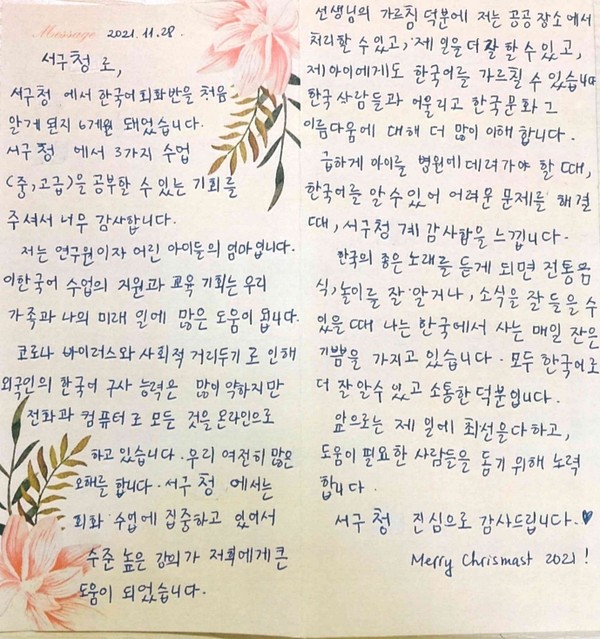 Message 2021.11.28.
서구청로,
서구청 에서 한국어회화반을 처음
알게 된지 6개월 돼었습니다.
서구청 에서 3가지 수업
(중,고급)을 공부할 수 있는 기회를
주셔서 너무 감사합니다.
저는 연구원이자 어린 아이들의 엄마입니다.
이한국어 수업의 지원과 교육 기회는 우리
가족과 나의 미래 일에 많은 도움이 됩니다.
코로나 바이러스와 사회적 거리두기로 인해
외국인의 한국어 구사 능력은 많이 약하지만
전화과 컴퓨터로 모든 것을 온라인으로
하고 있습니다. 우리 여전히 많은
오해를 합니다. 서구청 에서는
회화 수업에 집중하고 있어서
수준 높은 강의가 저희에게 큰
도움이 되었습니다.
선생님의 가르침 덕분에 저는 공공장소에서
처리할 수 있고, 제 일을 더 잘 할 수 있고,
제 아이에게도 한국어를 가르칠 수 있습니다
한국 사람들과 어울리고 한국문화 그
아름다움에 대해 더 많이 이해 합니다.
급하게 아이를 병원에 데려가야 할 때,
한국어를 알 수 있어 어려운 문제를 해결
때, 서구청 계 감사함을 느낍니다.
한국의 좋은 노래를 듣게 되면 전통음
식, 놀이를 잘 알거나, 소식을 잘 들을 수
있을 때 나는 한국에서 사는 매일 잔은
기쁨을 가지고 있습니다. 모두 한국어로
더 잘 알수 있고 소통한 덕분입니다.
앞으로는 제 일에 최선을 다하고,
도움이 필요한 사람들을 돕기 위해 노력
합니다.
서구청 진심으로 감사드립니다.♥
Merry Chrismast 2021!